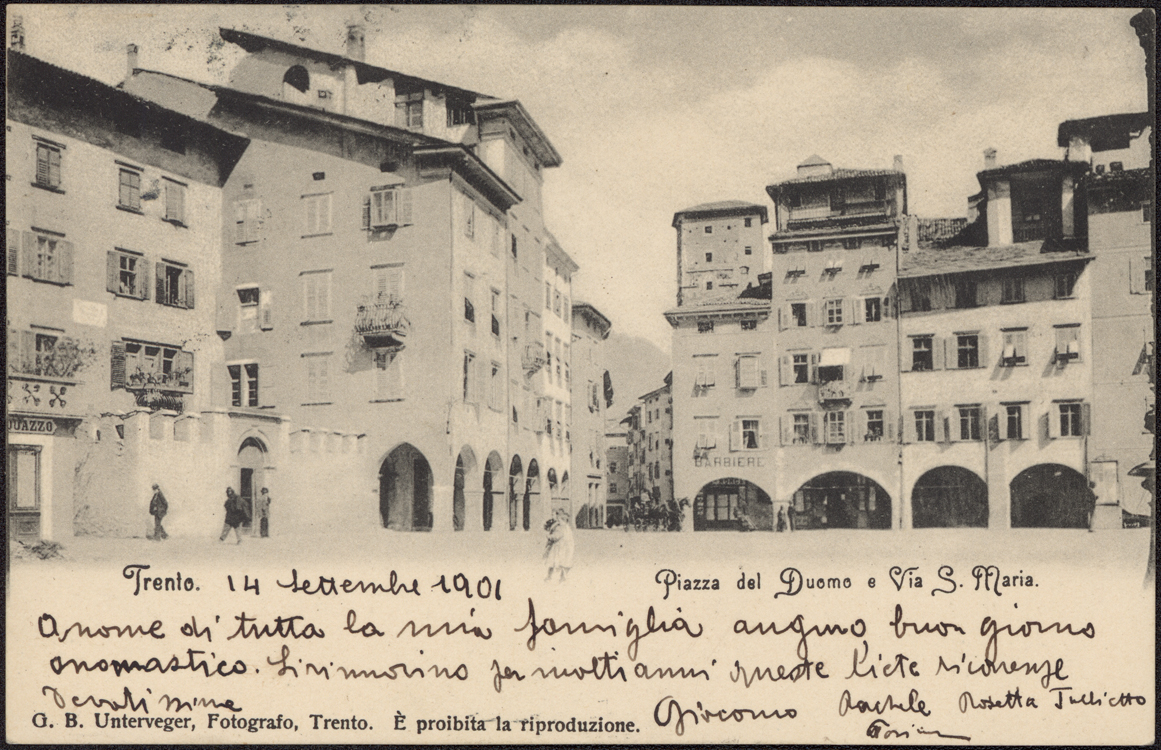 OUAZZO
BARBIERE
Trento. 14 Settembre 1901
Piazza del Duomo e Via S. Maria.
A nome di tutta la mia famiglia auguro buon giorno
onomastico. Si rinnovino per molti anni queste liete ricorrenze
G. B. Unterveger, Fotografo, Trento. È proibita la riproduzione.
Giacomo Rachele Rosetta